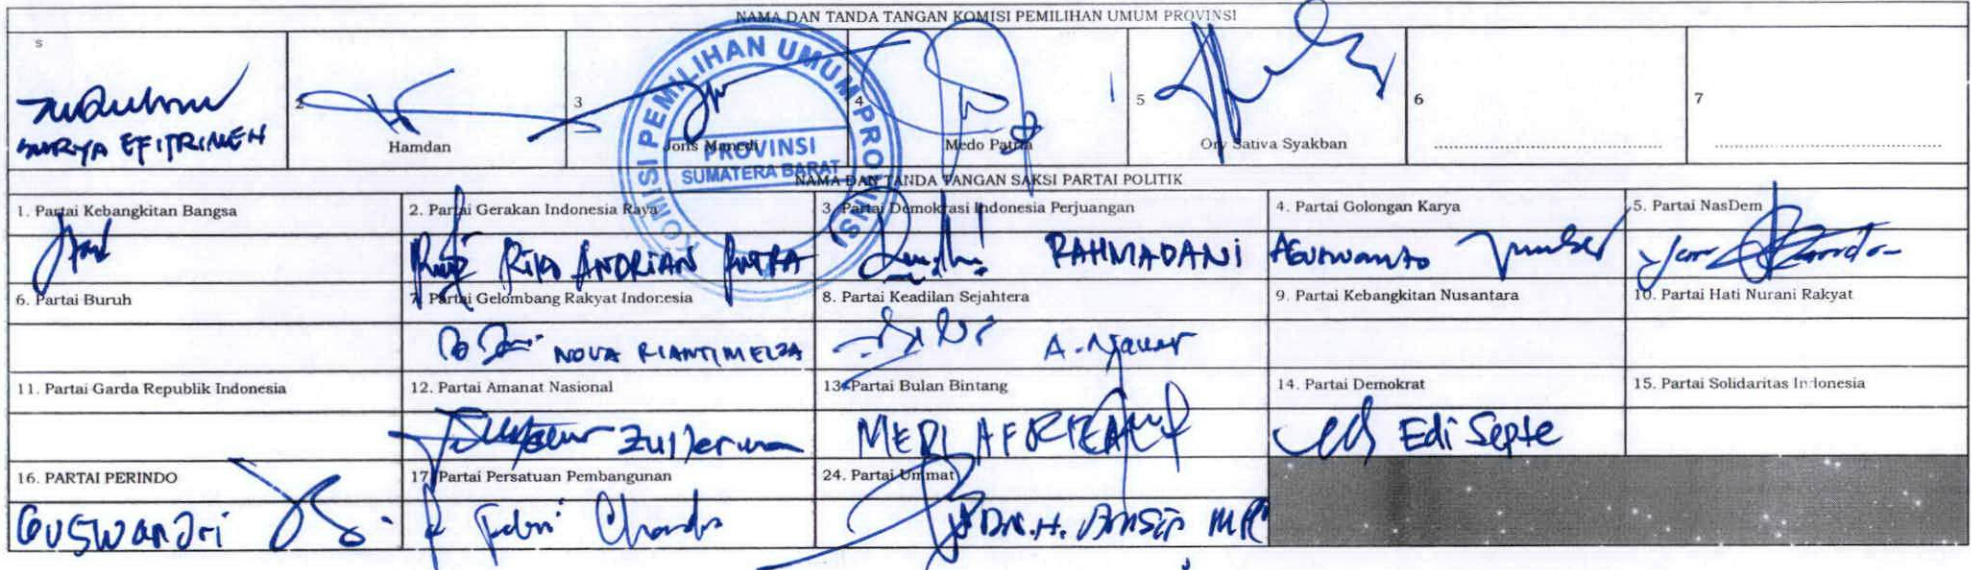 NAMA DAN TANDA TANGAN KOMISI PEMILIHAN UMUM PROVINSI
s
SURYA EFITRIMEN
2
Hamdan
3
Joris Manedi
4
Medo Patria
5
Ory Sativa Syakban
6
7
KOMISI PEMILIHAN UMUM PROVINSI
PROVINSI
SUMATERA BARAT
NAMA DAN TANDA TANGAN SAKSI PARTAI POLITIK
1. Partai Kebangkitan Bangsa
2. Partai Gerakan Indonesia Raya
3. Partai Demokrasi Indonesia Perjuangan
4. Partai Golongan Karya
5. Partai NasDem
RIKO ANDRIAN PUTRA
RAHMADANI
6. Partai Buruh
7. Partai Gelombang Rakyat Indonesia
8. Partai Keadilan Sejahtera
9. Partai Kebangkitan Nusantara
10. Partai Hati Nurani Rakyat
NOVA RIANTIMELZA
11. Partai Garda Republik Indonesia
12. Partai Amanat Nasional
13. Partai Bulan Bintang
14. Partai Demokrat
15. Partai Solidaritas Indonesia
Edi Septe
16. PARTAI PERINDO
17. Partai Persatuan Pembangunan
24. Partai Ummat
Guswandri
Febri Chandra